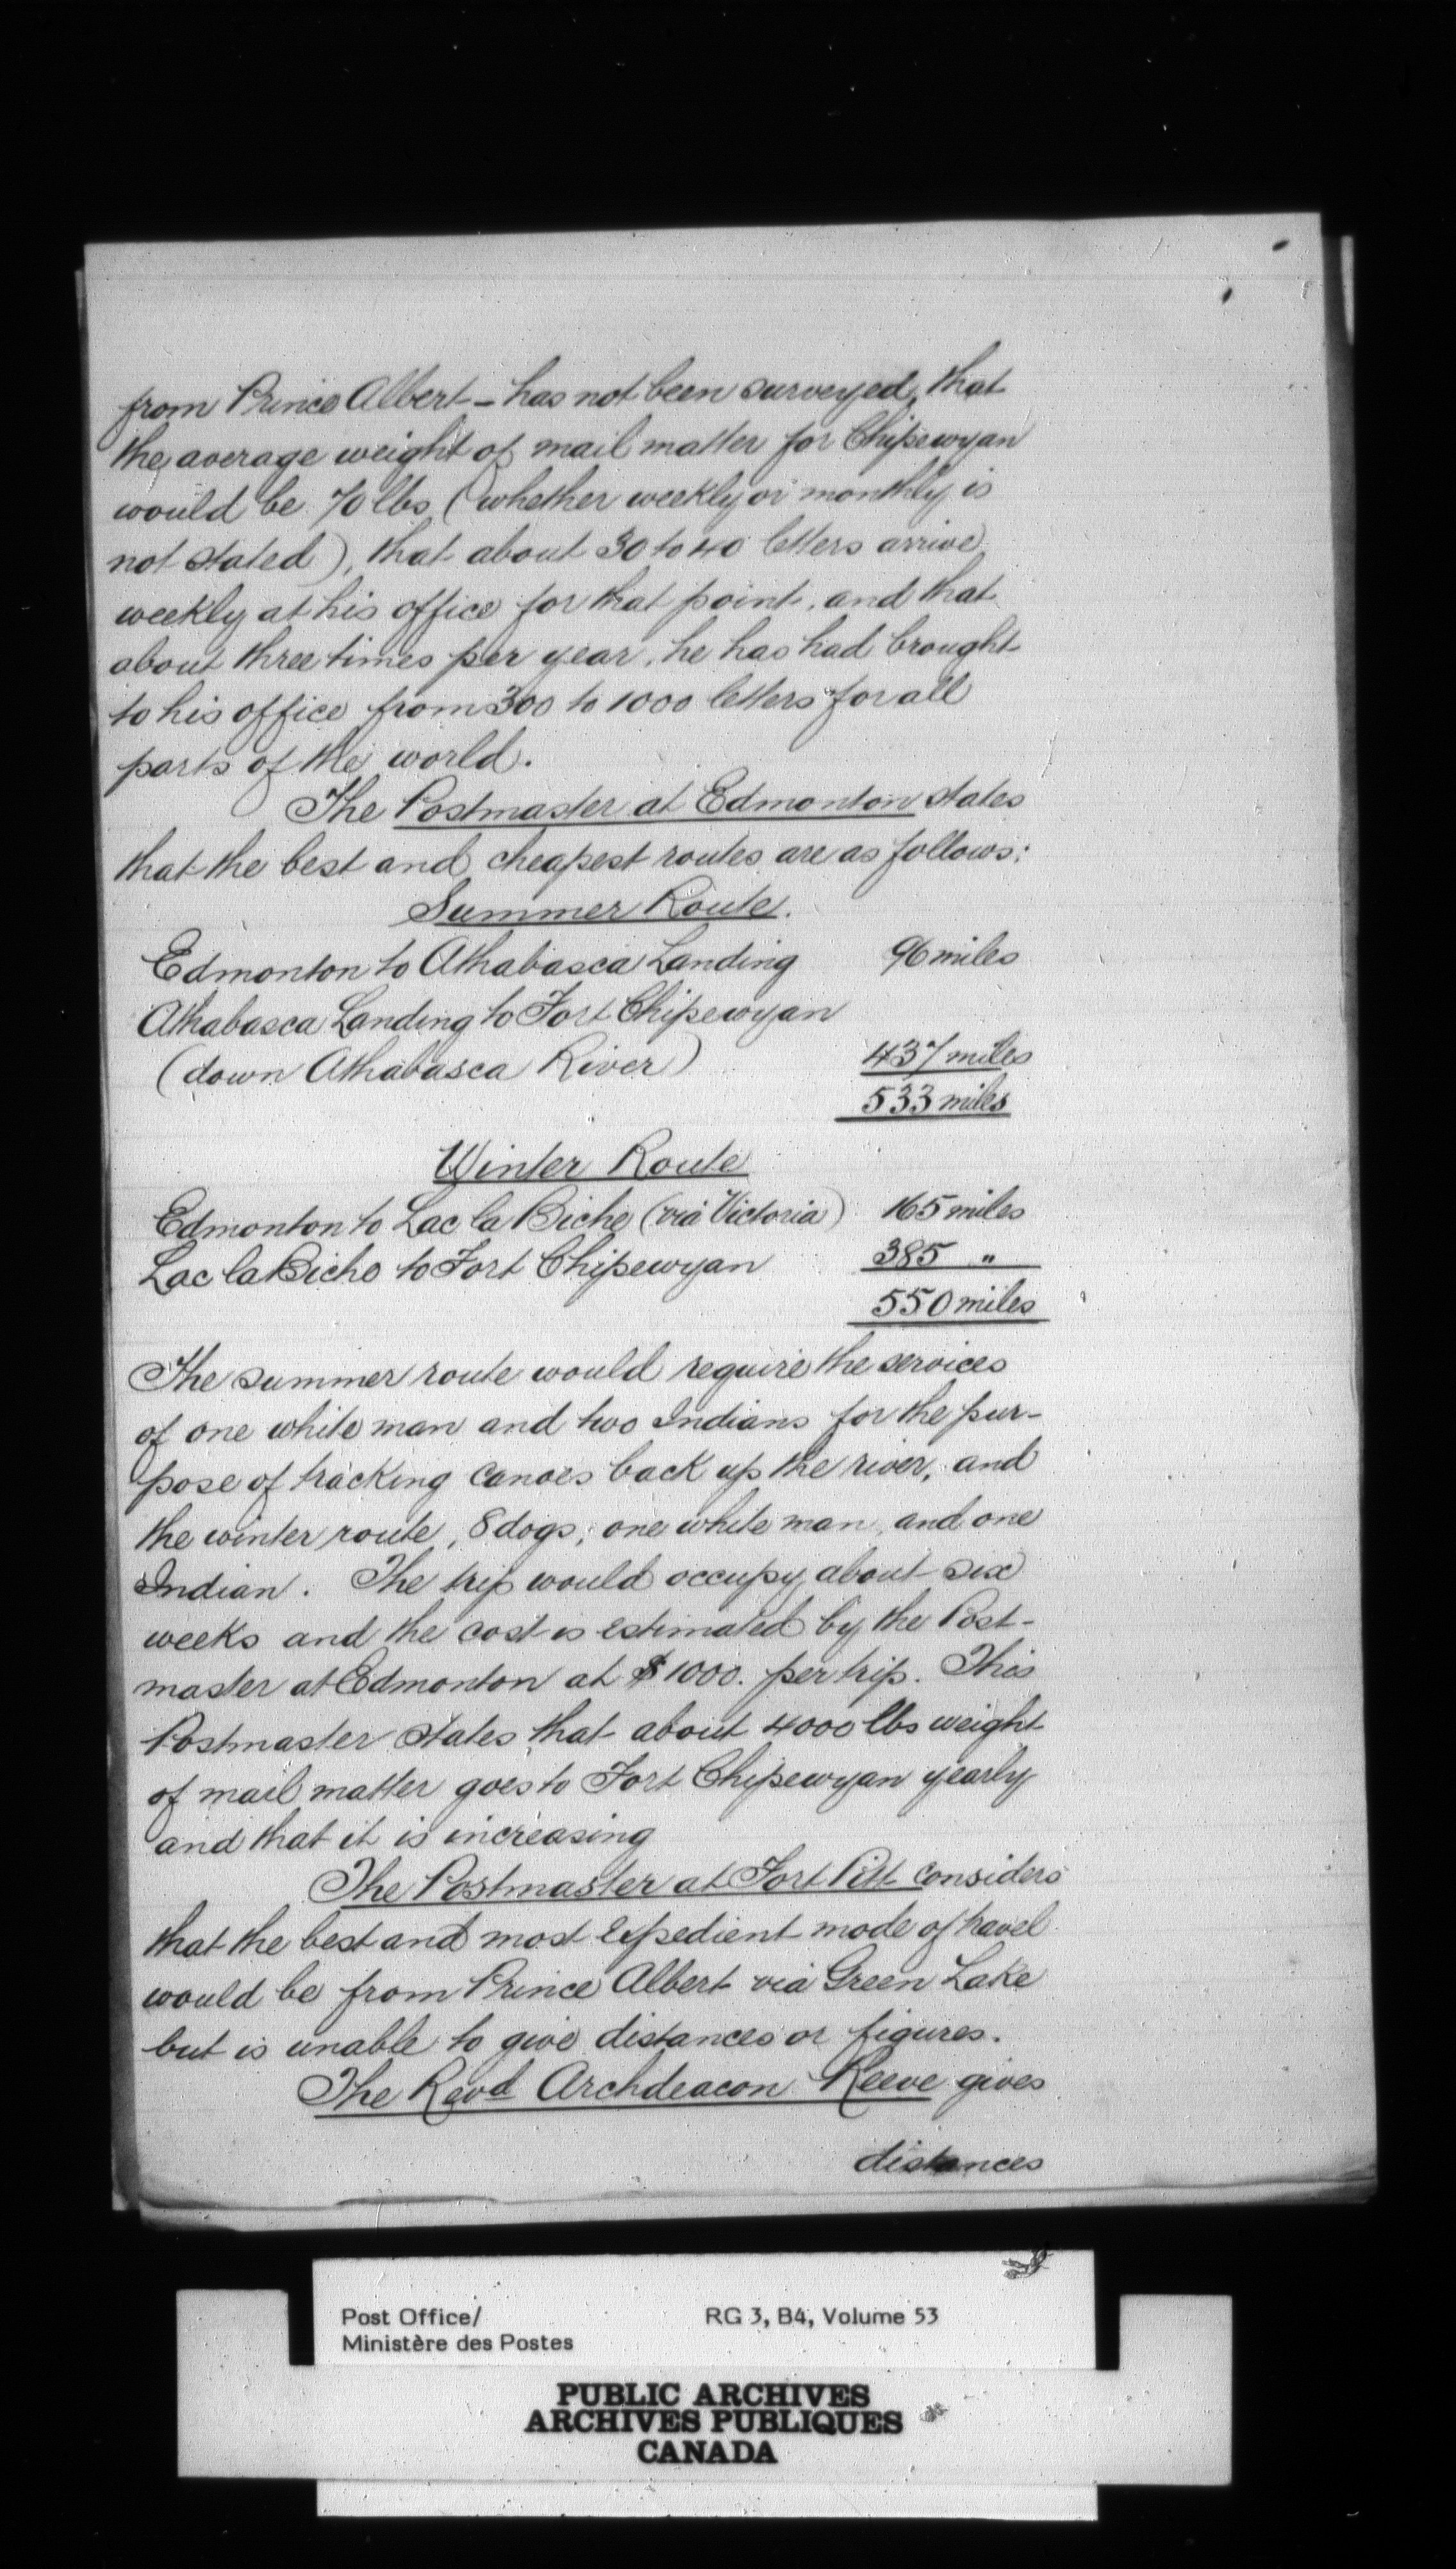 from Prince Albert - has not been surveyed, that
the average weight of mail matter for Chipewyan
would be 70 lbs (whether weekly or monthly is
not stated), that about 30 to 40 letters arrive
weekly at his office for that point, and that
about three times per year, he has had brought
to his office from 300 to 1000 letters for all
parts of the world.
The Postmaster at Edmonton states
that the best and cheapest routes are as follows:
Summer Route.
Edmonton to Athabasca Landing 96 miles
Athabasca Landing to Fort Chipewyan
(down Athabasca River) 437 miles
533 miles
Winter Route
Edmonton to Lac la Biche (via Victoria) 165 miles
Lac la Biche to Fort Chipewyan 385 "
550 miles
The summer route would require the services
of one white man and two Indians for the pur-
pose of tracking canoes back up the river, and
the winter route, 8 dogs, one white man, and one
Indian. The trip would occupy about six
weeks and the cost is estimated by the Post-
master at Edmonton at $1000. per trip. This
Postmaster states that about 4000 lbs weight
of mail matter goes to Fort Chipewyan yearly
and that it is increasing
The Postmaster at Fort Pitt considers
that the best and most expedient mode of travel
would be from Prince Albert via Green Lake
but is unable to give distances or figures.
The Revd Archdeacon Reeve gives
distances
Post Office/ RG 3, B4, Volume 53
Ministère des Postes
PUBLIC ARCHIVES
ARCHIVES PUBLIQUES
CANADA